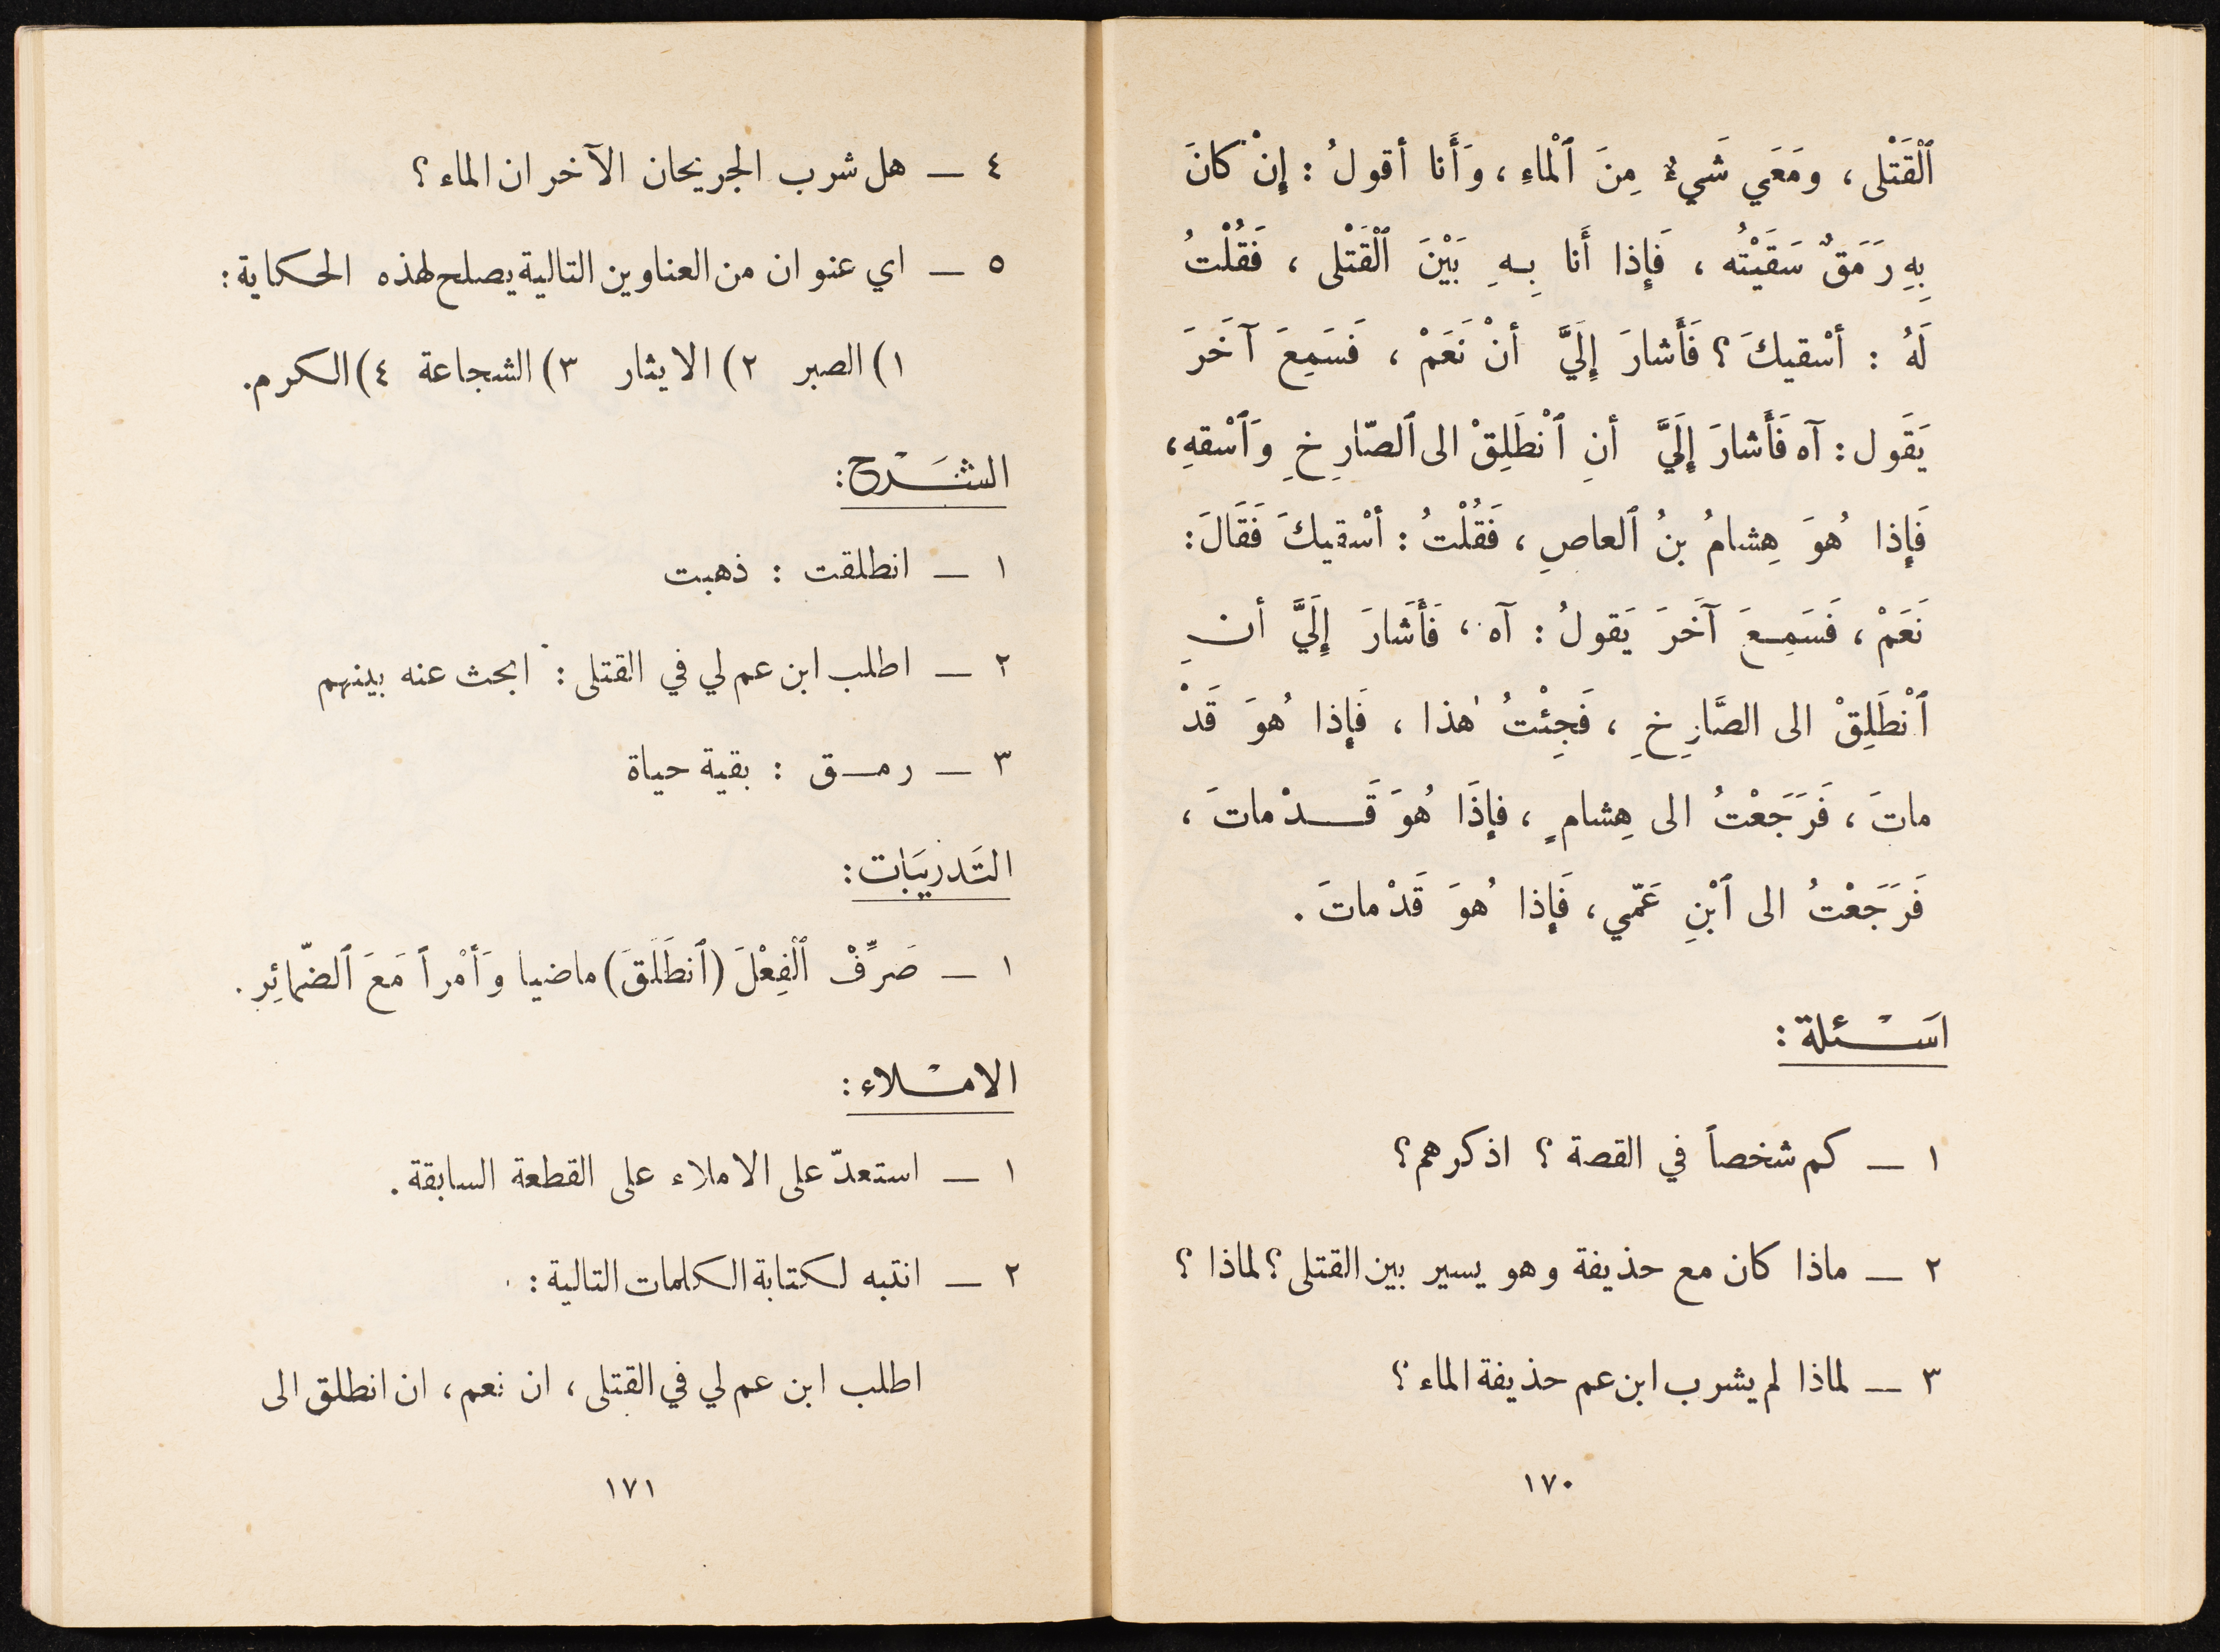 ٱلْقَتْلى ، ومَعَي شَيءٌ مِنَ ٱلْماءِ ، وَأَنا أقولُ : إِنْ كانَ
بِهِ رَمَقٌ سَقَيْتُه ، فَإِذا أَنا بِـهِ بَيْنَ ٱلْقَتْلى ، فَقُلْتُ
لَهُ : أسْقيكَ ؟ فَأَشارَ إِلَيَّ أنْ نَعَمْ ، فَسَمِعَ آخَرَ
يَقَول : آه فَأَشارَ إِلَيَّ أنِ ٱنْطَلِقْ الى ٱلصّارِخِ وَٱسْقهِ ،
فَإِذا هُوَ هِشامُ بنُ ٱلعاصِ ، فَقُلْتُ : أسْقيكَ فَقَالَ :
نَعَمْ ، فَسَمِـعَ آخَرَ يَقولُ : آه ، فَأَشَارَ إِلَيَّ أنِ
ٱنْطَلِقْ الى الصَّارِخِ ، فَجِئْتُ هٰذا ، فَإِذا هُوَ قَدْ
ماتَ ، فَرَجَعْتُ الى هِشامٍ ، فإِذَا هُوَ قَــدْ ماتَ ،
فَرَجَعْتُ الى ٱبْنِ عَمّي ، فَإِذا هُوَ قَدْ ماتَ .
اَسْـئلة :
١ ــ كم شخصاً في القصة ؟ اذكرهم ؟
٢ ــ ماذا كان مع حذيفة وهو يسير بين القتلى ؟ لماذا ؟
٣ ــ لماذا لم يشرب ابن عم حذيفة الماء ؟
١٧٠
٤ ــ هل شرب الجريحان الآخران الماء ؟
٥ ــ اي عنوان من العناوين التالية يصلح لهذه الحكاية :
١) الصبر ٢) الايثار ٣) الشجاعة ٤) الكرم.
الشَـْرح :
١ ــ انطلقت : ذهبت
٢ ــ اطلب ابن عم لي في القتلى : ابحث عنه بينهم
٣ ــ رمـق : بقية حياة
التَدْريَبات :
١ ــ صَرِّفْ ٱلْفِعْلَ (ٱنطَلَقَ) ماضيا وَأمْراً مَعَ ٱلضّمائِر .
الامْـلاء :
١ ــ استعدّ على الاملاء على القطعة السابقة .
٢ ــ انتبه لكتابة الكلمات التالية :
اطلب ابن عم لي في القتلى ، ان نعم ، ان انطلق الى
١٧١